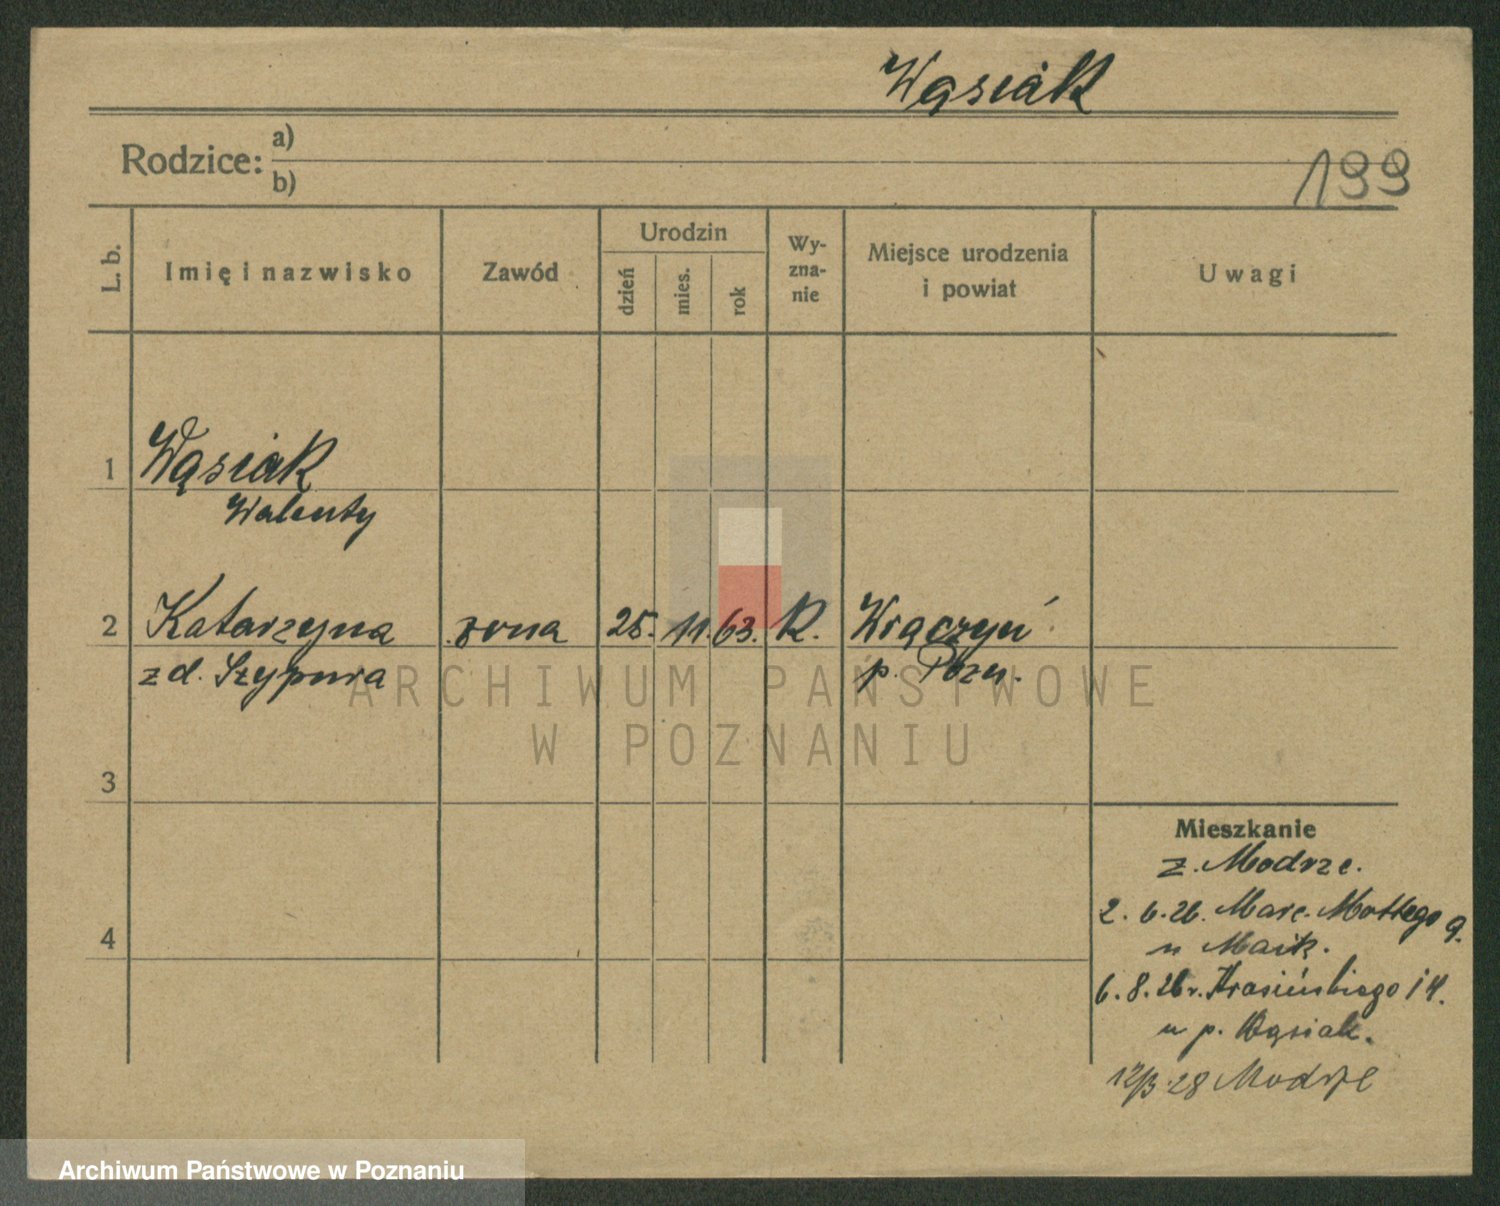 Wąsiak
Rodzice: a)
b)
199
L. b.
Imię i nazwisko
Zawód
Urodzin
dzień
mies.
rok
Wy-
zna-
nie
Miejsce urodzenia
i powiat
Uwagi
1 Wąsiak
Walenty
2 Katarzyna żona 25. 11. 63. K. Wrączyń
zd. Szypura p. Pozn.
3
4
Mieszkanie
z. Modrze.
2. 6. 26. Marc. Mottego 9.
u
6. 8. 26 r. Krasińskiego 14.
u p. Wąsiak.
12/3 28 Modrze
ARCHIWUM PAŃSTWOWE
W POZNANIU
Archiwum Państwowe w Poznaniu